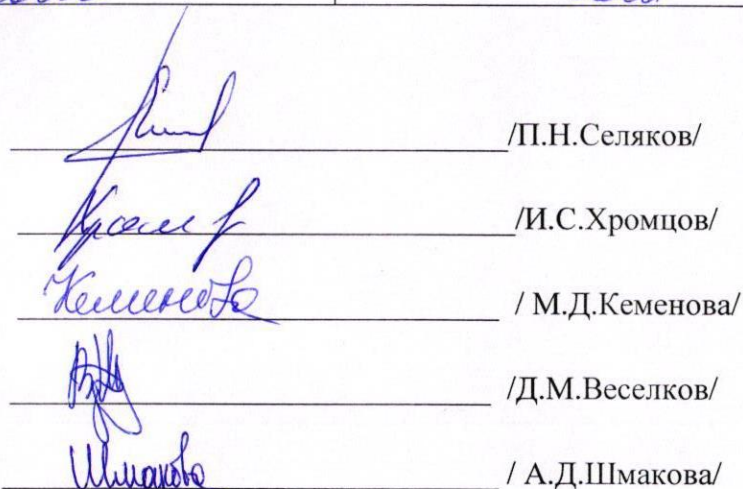 /П.Н.Селяков/
/И.С.Хромцов/
Кеменова / М.Д.Кеменова/
/Д.М.Веселков/
Шмакова / А.Д.Шмакова/